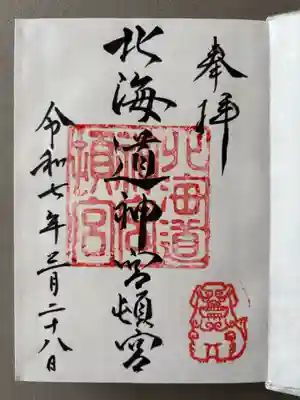 奉拝
北海道神宮頓宮
北海道
神宮
頓宮
令和七年三月二十八日